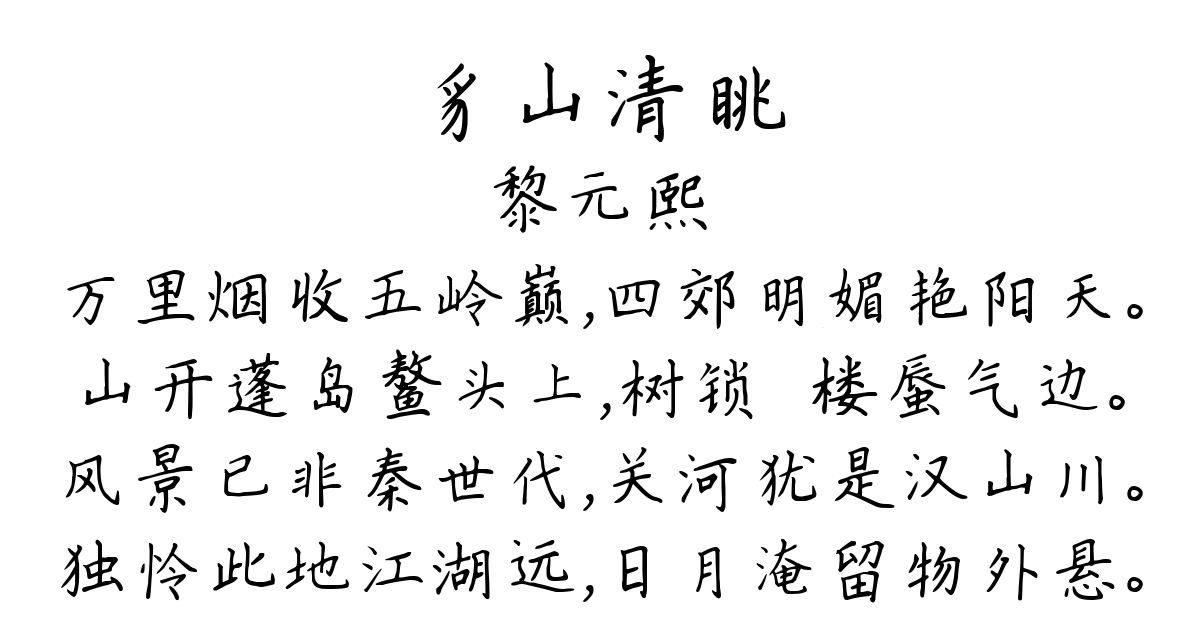 豸山清眺
黎元熙
万里烟收五岭巅,四郊明媚艳阳天。
山开蓬岛鳌头上,树锁 楼蜃气边。
风景已非秦世代,关河犹是汉山川。
独怜此地江湖远,日月淹留物外悬。